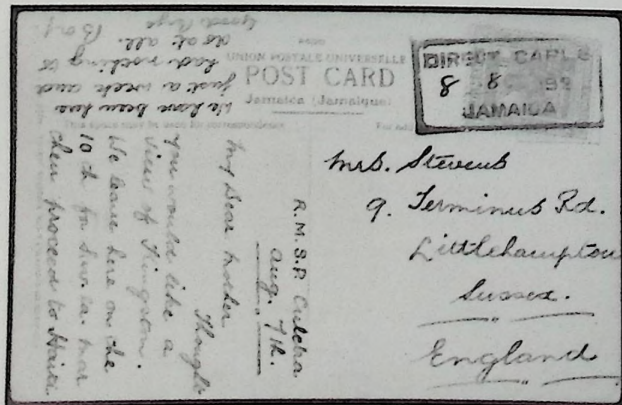 UNION POSTALE UNIVERSELLE
POST CARD
Jamaica (Jamaique)
This space may be used for correspondence
DIRECT CABLE
8 8 192
JAMAICA
Mrs. Stevens
9. Terminus Rd.
Littlehampton
Sussex.
England
R.M.S.P. Culebra
Aug. 7th.
My Dear Mother
Thought
you would like a
view of Kingston.
We leave here on the
10th for Sav. la. Mar
then proceed to Haiti.
We have been here
just a week and
had nothing to
do at all.